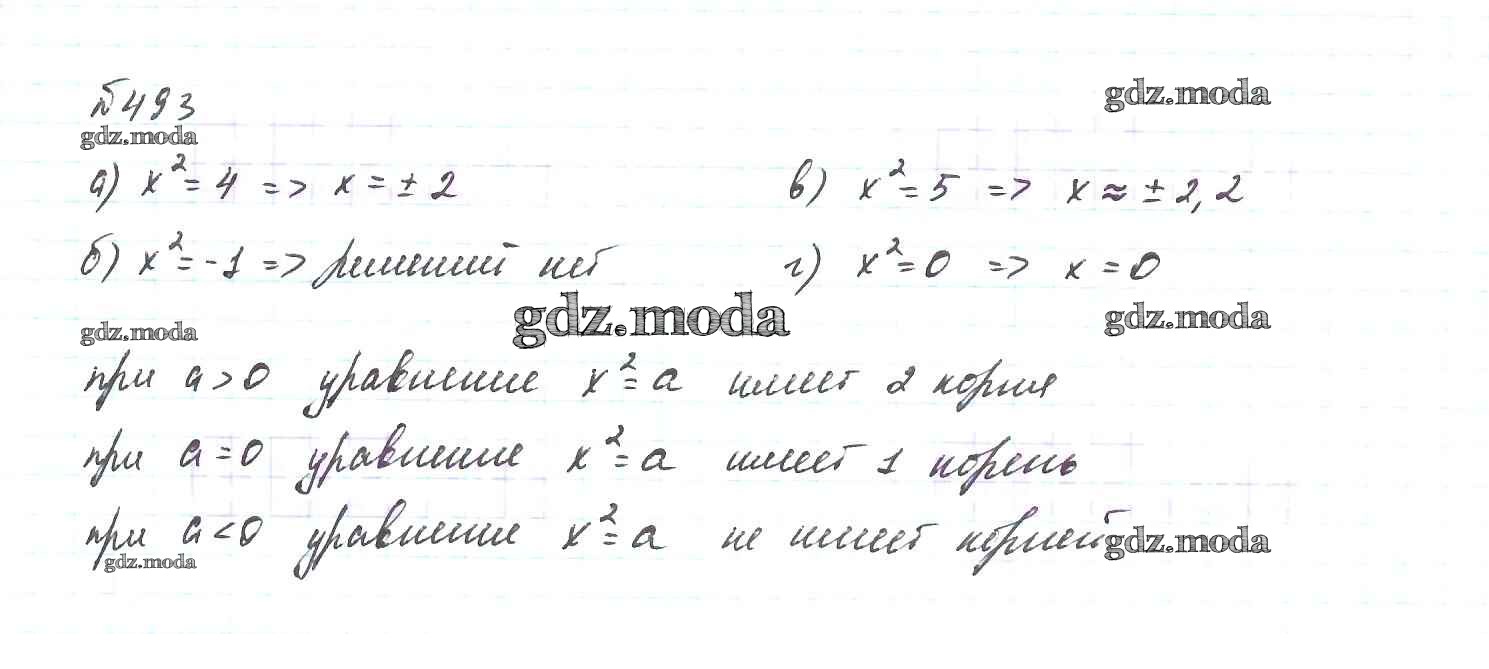 №493
gdz.moda
gdz.moda
а) x²=4 => x=±2
в) x²=5 => x≈±2,2
б) x²=-1 => решений нет
г) x²=0 => x=0
gdz.moda
gdz.moda
gdz.moda
при a>0 уравнение x²=a имеет 2 корня
при a=0 уравнение x²=a имеет 1 корень
при a<0 уравнение x²=a не имеет корней
gdz.moda
gdz.moda